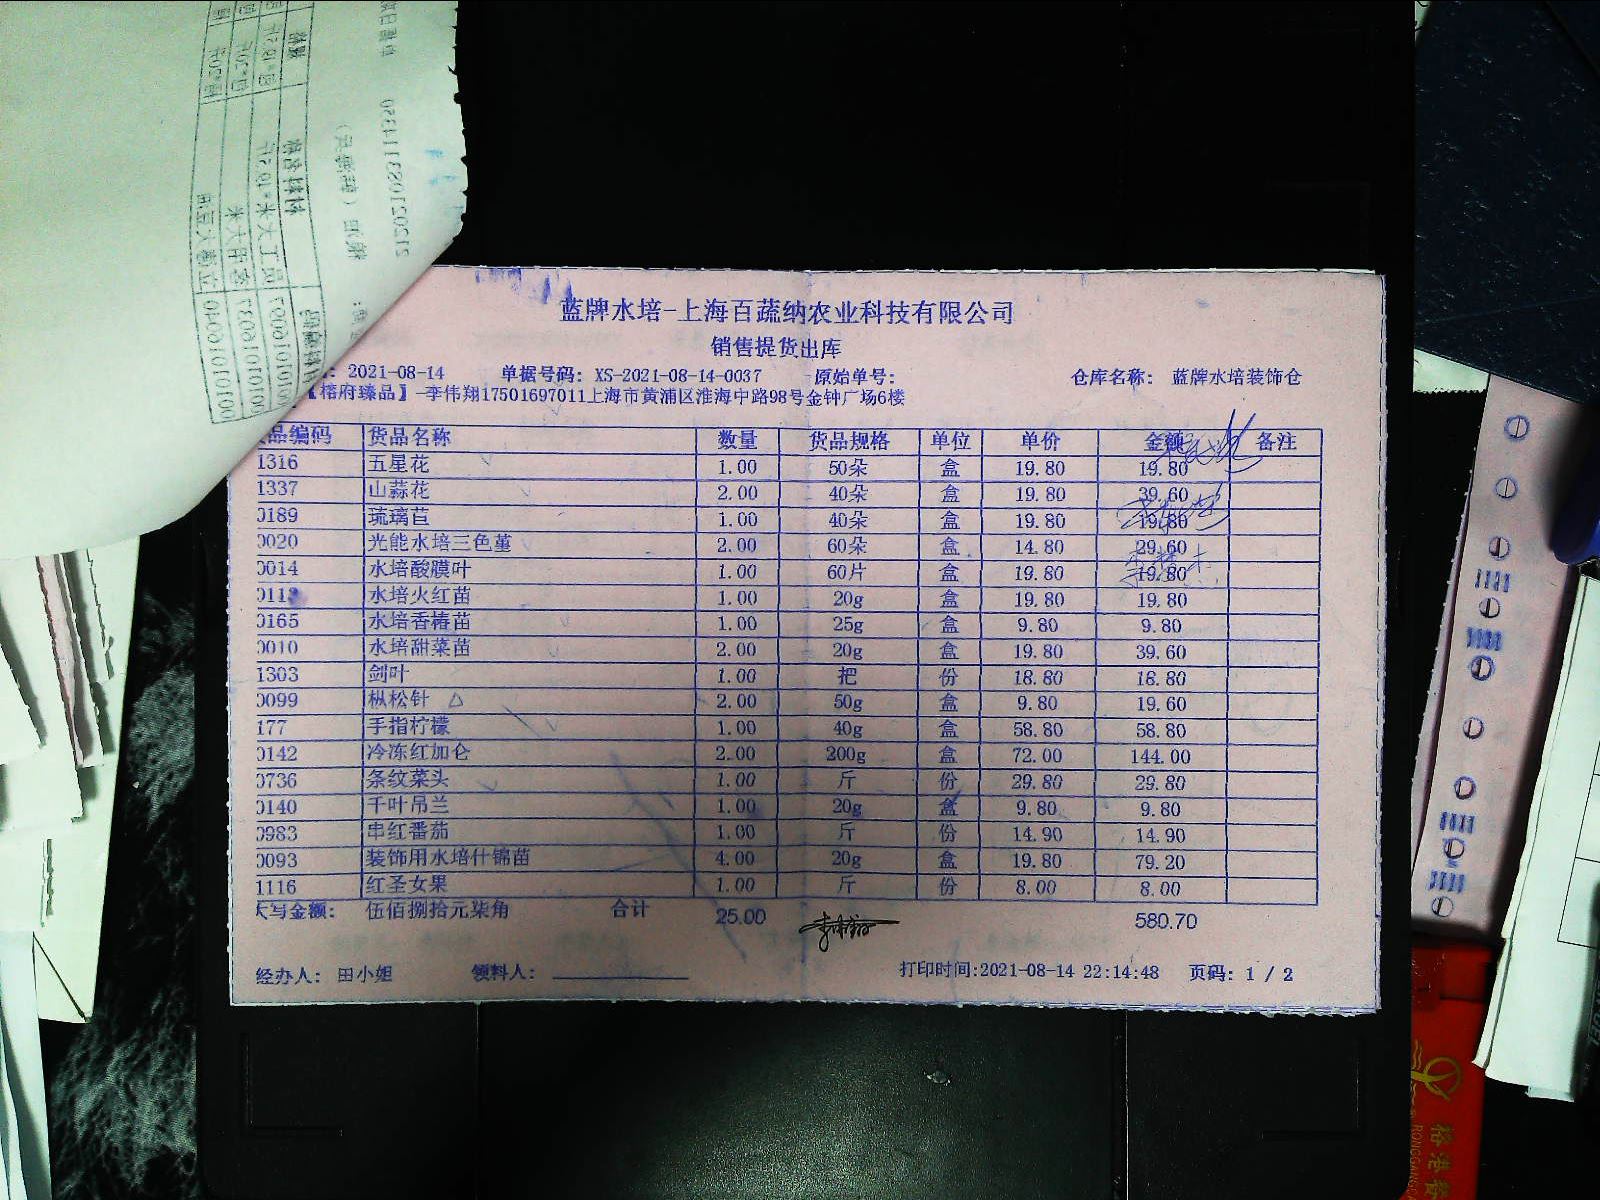 蓝牌水培-上海百蔬纳农业科技有限公司
销售提货出库
: 2021-08-14 单据号码: XS-2021-08-14-0037 原始单号: 仓库名称: 蓝牌水培装饰仓
【榕府臻品】-李伟翔17501697011上海市黄浦区淮海中路98号金钟广场6楼
品编码 货品名称 数量 货品规格 单位 单价 金额 备注
1316 五星花 1.00 50朵 盒 19.80 19.80
1337 山蒜花 2.00 40朵 盒 19.80 39.60
0189 琉璃苣 1.00 40朵 盒 19.80 19.80
0020 光能水培三色堇 2.00 60朵 盒 14.80 29.60
0014 水培酸膜叶 1.00 60片 盒 19.80 19.80
水培火红苗 1.00 20g 盒 19.80 19.80
0165 水培香椿苗 1.00 25g 盒 9.80 9.80
0010 水培甜菜苗 2.00 20g 盒 19.80 39.60
1303 剑叶 1.00 把 份 18.80 18.80
0099 枞松针 △ 2.00 50g 盒 9.80 19.60
177 手指柠檬 1.00 40g 盒 58.80 58.80
0142 冷冻红加仑 2.00 200g 盒 72.00 144.00
0736 条纹菜头 1.00 斤 份 29.80 29.80
0140 千叶吊兰 1.00 20g 盒 9.80 9.80
0983 串红番茄 1.00 斤 份 14.90 14.90
0093 装饰用水培什锦苗 4.00 20g 盒 19.80 79.20
1116 红圣女果 1.00 斤 份 8.00 8.00
大写金额: 伍佰捌拾元柒角 合计 25.00 580.70
经办人: 田小姐 领料人: 打印时间:2021-08-14 22:14:48 页码: 1 / 2